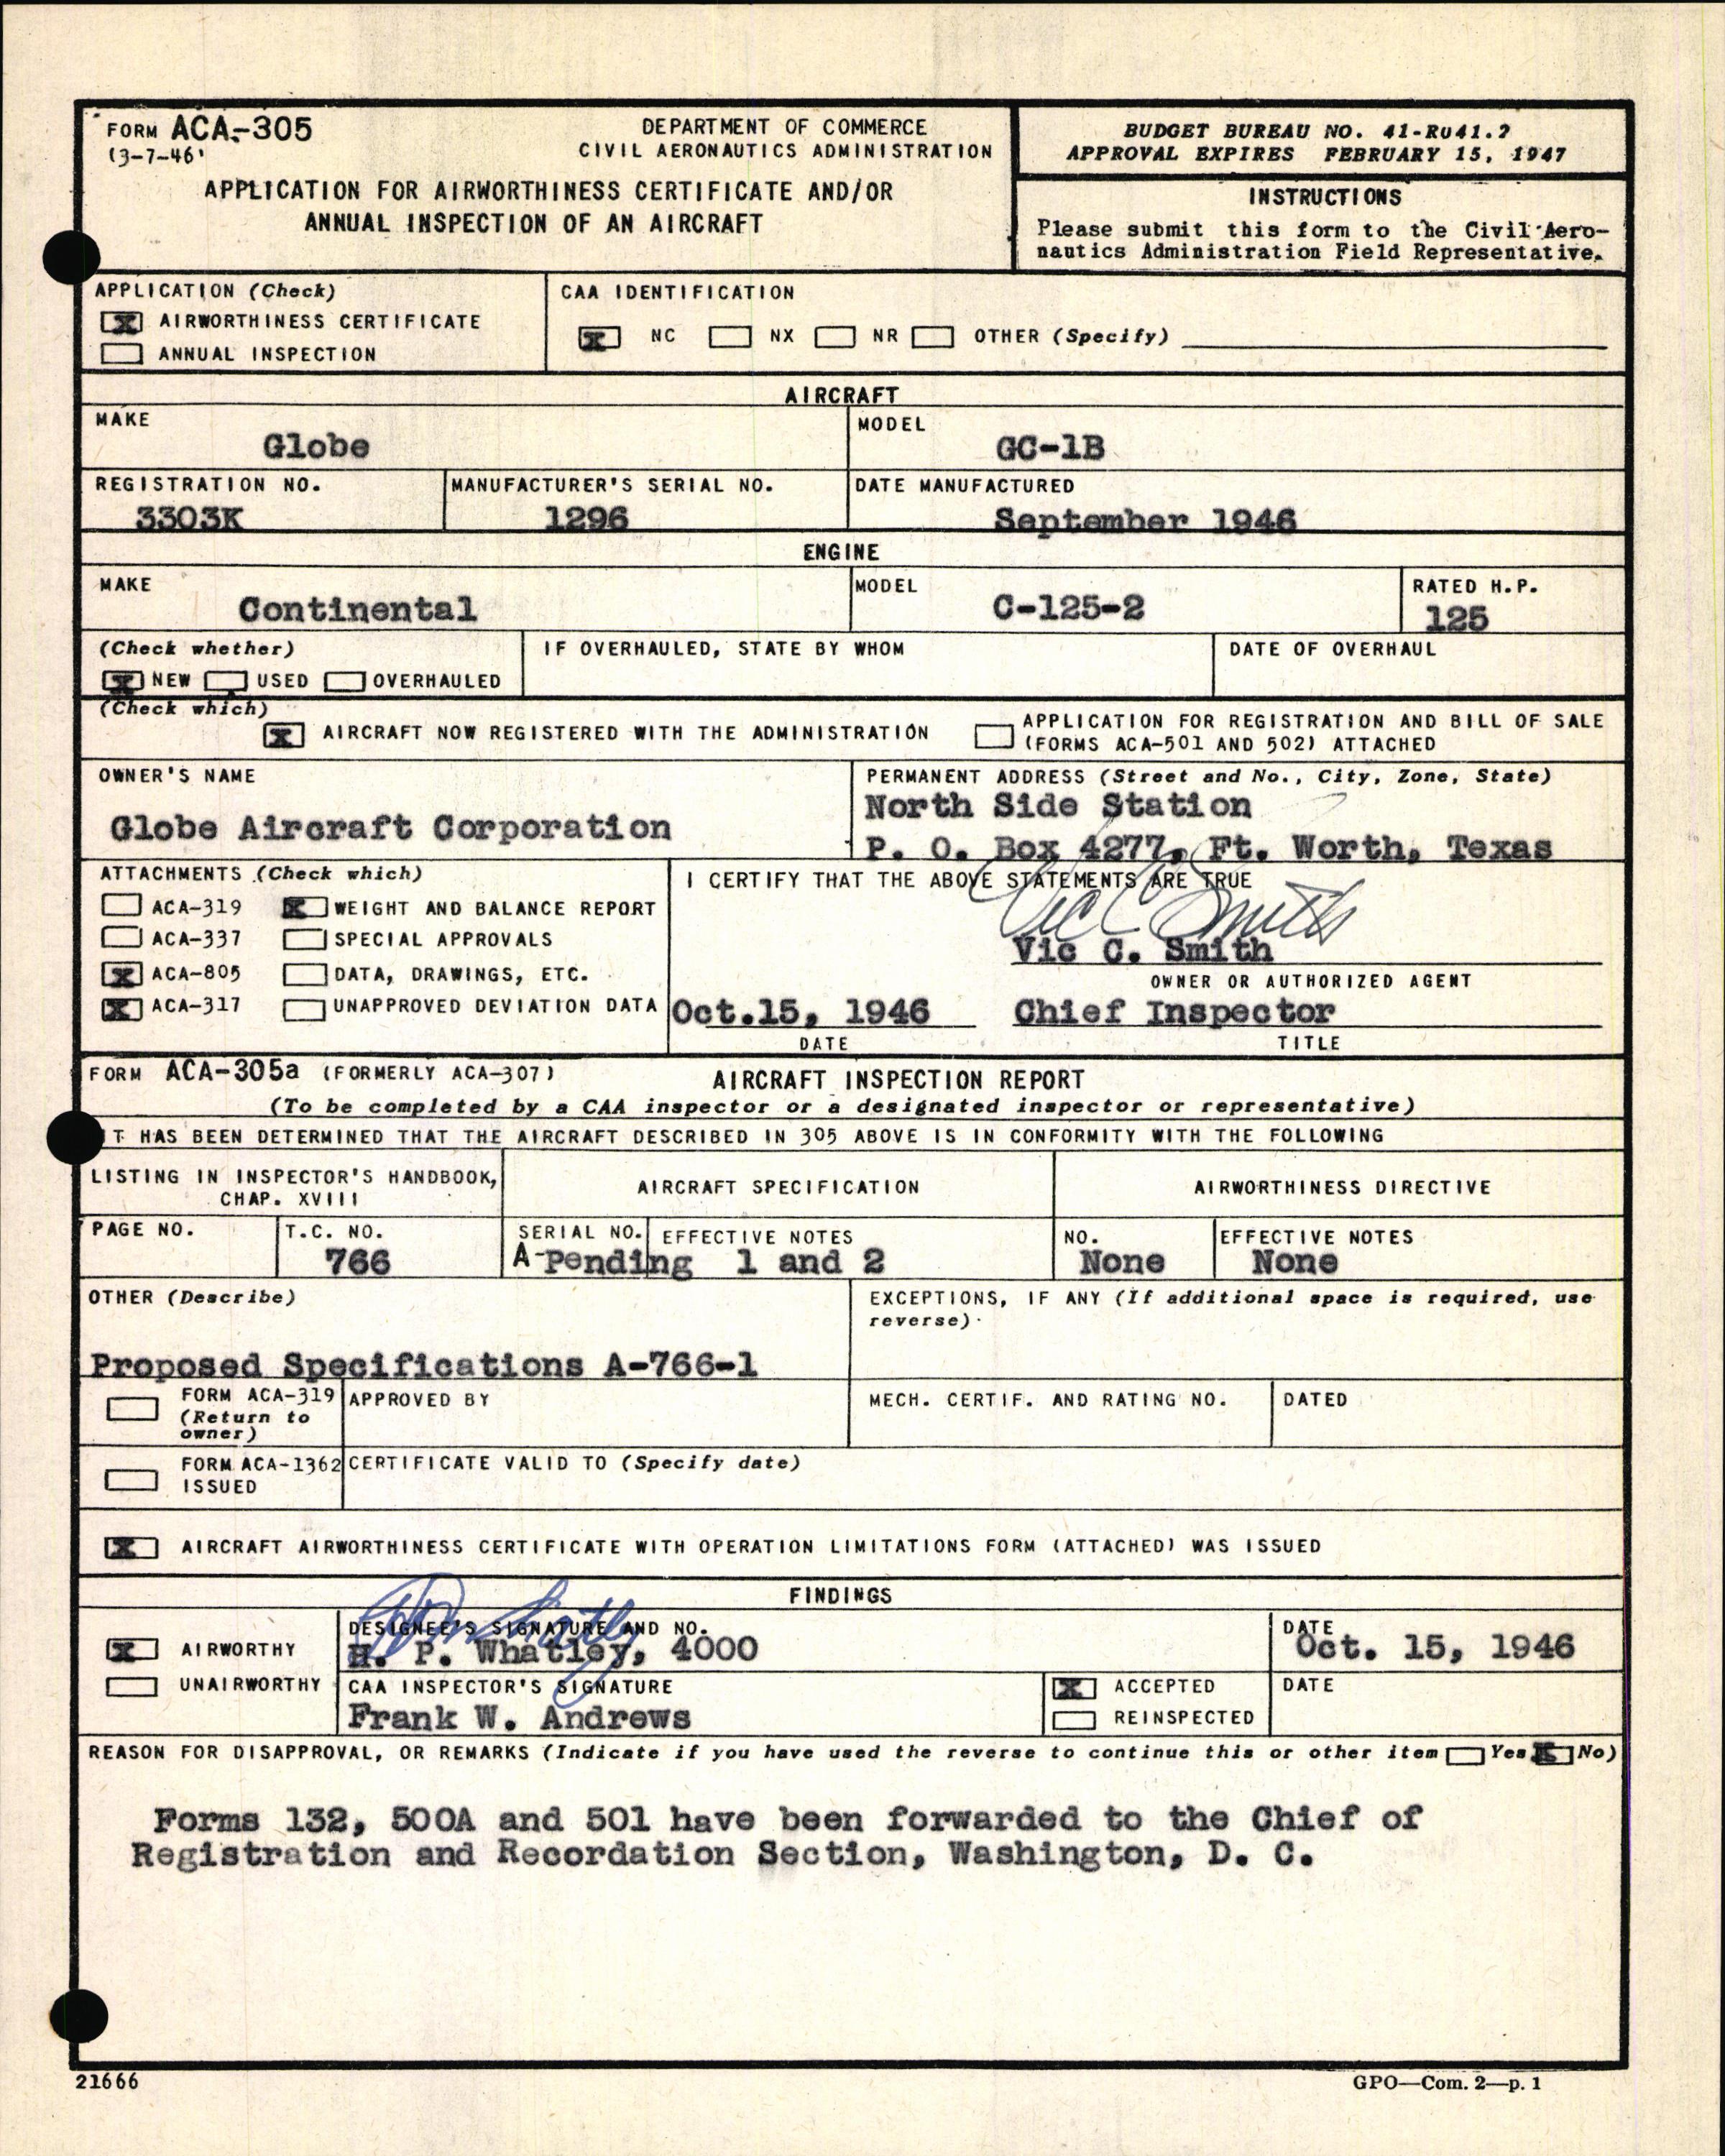 FORM ACA-305
(3-7-46)
DEPARTMENT OF COMMERCE
CIVIL AERONAUTICS ADMINISTRATION
APPLICATION FOR AIRWORTHINESS CERTIFICATE AND/OR
ANNUAL INSPECTION OF AN AIRCRAFT
BUDGET BUREAU NO. 41-R041.2
APPROVAL EXPIRES FEBRUARY 15, 1947
INSTRUCTIONS
Please submit this form to the Civil Aero-
nautics Administration Field Representative.
APPLICATION (Check)
X AIRWORTHINESS CERTIFICATE
ANNUAL INSPECTION
CAA IDENTIFICATION
X NC NX NR OTHER (Specify)
AIRCRAFT
MAKE
Globe
MODEL
GC-1B
REGISTRATION NO.
3303K
MANUFACTURER'S SERIAL NO.
1296
DATE MANUFACTURED
September 1946
ENGINE
MAKE
Continental
MODEL
C-125-2
RATED H.P.
125
(Check whether)
X NEW USED OVERHAULED
IF OVERHAULED, STATE BY WHOM
DATE OF OVERHAUL
(Check which)
X AIRCRAFT NOW REGISTERED WITH THE ADMINISTRATION
APPLICATION FOR REGISTRATION AND BILL OF SALE
(FORMS ACA-501 AND 502) ATTACHED
OWNER'S NAME
Globe Aircraft Corporation
PERMANENT ADDRESS (Street and No., City, Zone, State)
North Side Station
P. O. Box 4277, Ft. Worth, Texas
ATTACHMENTS (Check which)
ACA-319 X WEIGHT AND BALANCE REPORT
ACA-337 SPECIAL APPROVALS
X ACA-805 DATA, DRAWINGS, ETC.
X ACA-317 UNAPPROVED DEVIATION DATA
I CERTIFY THAT THE ABOVE STATEMENTS ARE TRUE
Vic C Smith
Vic C. Smith
OWNER OR AUTHORIZED AGENT
Oct.15, 1946 Chief Inspector
DATE TITLE
FORM ACA-305a (FORMERLY ACA-307)
AIRCRAFT INSPECTION REPORT
(To be completed by a CAA inspector or a designated inspector or representative)
IT HAS BEEN DETERMINED THAT THE AIRCRAFT DESCRIBED IN 305 ABOVE IS IN CONFORMITY WITH THE FOLLOWING
LISTING IN INSPECTOR'S HANDBOOK,
CHAP. XVIII
AIRCRAFT SPECIFICATION
AIRWORTHINESS DIRECTIVE
PAGE NO.
T.C. NO.
766
SERIAL NO. EFFECTIVE NOTES
A-Pending 1 and 2
NO.
None
EFFECTIVE NOTES
None
OTHER (Describe)
Proposed Specifications A-766-1
EXCEPTIONS, IF ANY (If additional space is required, use
reverse)
FORM ACA-319
(Return to
owner)
APPROVED BY
MECH. CERTIF. AND RATING NO.
DATED
FORM ACA-1362
ISSUED
CERTIFICATE VALID TO (Specify date)
X AIRCRAFT AIRWORTHINESS CERTIFICATE WITH OPERATION LIMITATIONS FORM (ATTACHED) WAS ISSUED
FINDINGS
X AIRWORTHY
UNAIRWORTHY
DESIGNEE'S SIGNATURE AND NO.
H. P. Whatley, 4000
DATE
Oct. 15, 1946
CAA INSPECTOR'S SIGNATURE
Frank W. Andrews
X ACCEPTED
REINSPECTED
DATE
REASON FOR DISAPPROVAL, OR REMARKS (Indicate if you have used the reverse to continue this or other item Yes X No)
Forms 132, 500A and 501 have been forwarded to the Chief of
Registration and Recordation Section, Washington, D. C.
21666
GPO—Com. 2—p. 1